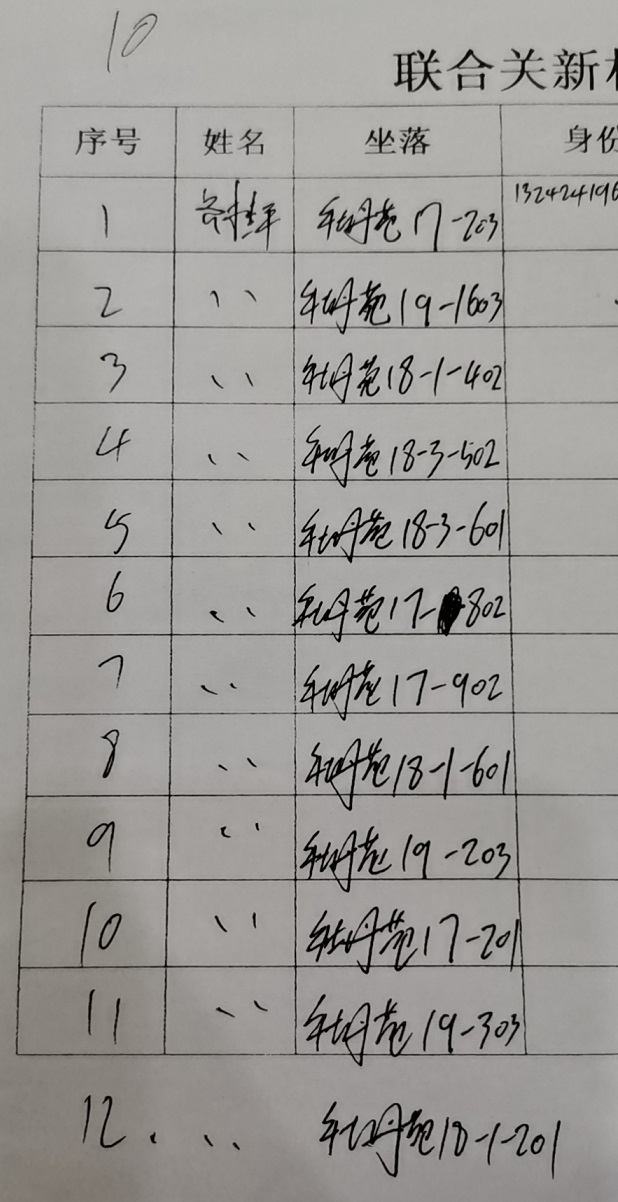 10
联合关新
序号 姓名 坐落 身份
1 牡丹苑 17-203 132424196
2 〃 牡丹苑 19-1603
3 〃 牡丹苑 18-1-402
4 〃 牡丹苑 18-3-502
5 〃 牡丹苑 18-3-601
6 〃 牡丹苑 17-802
7 〃 牡丹苑 17-902
8 〃 牡丹苑 18-1-601
9 〃 牡丹苑 19-203
10 〃 牡丹苑 17-201
11 〃 牡丹苑 19-303
12. 〃 牡丹苑 18-1-201